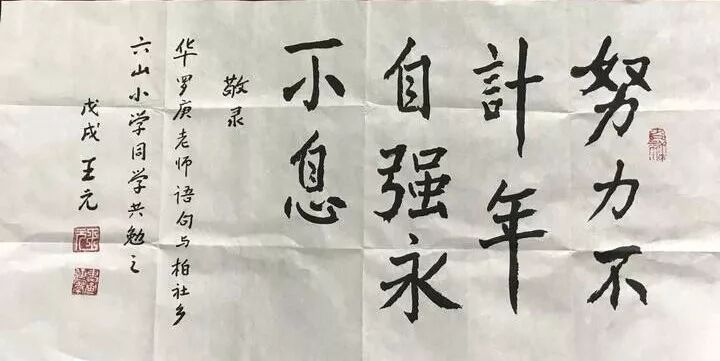 努力不
計年
自强永
不息
敬录
华罗庚老师语句与柏社乡
六山小学同学共勉之
戊戌王元